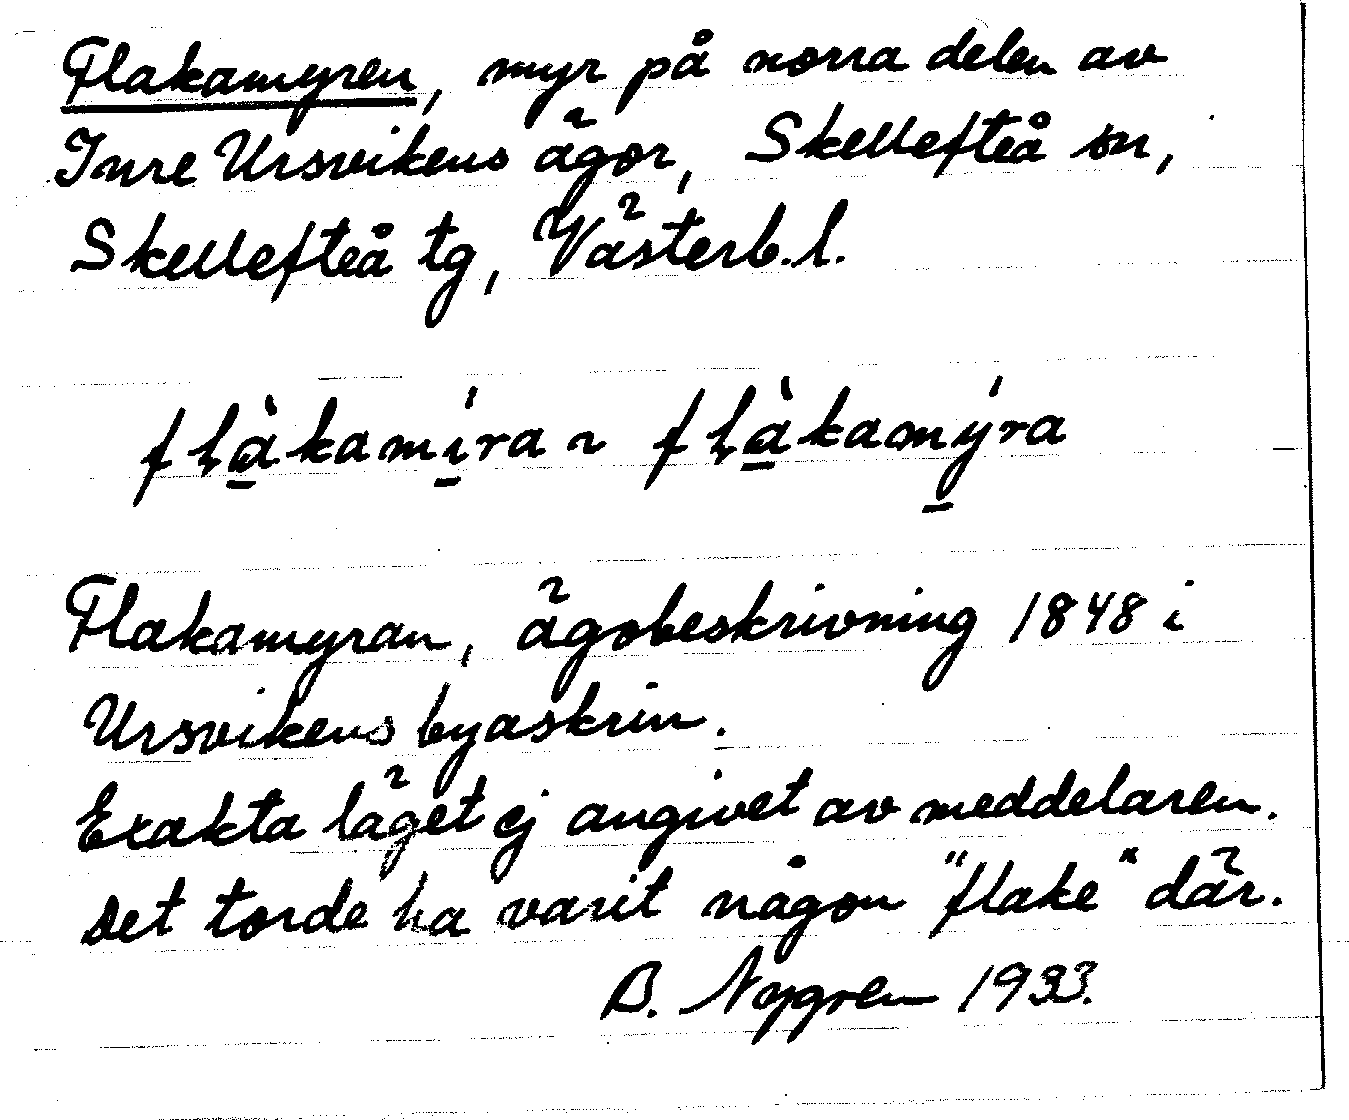 Flakamyren, myr på norra delen av
Inre Ursvikens ägor, Skellefteå sn,
Skellefteå tg, Västerb. l.
fḷà̲kamí̲ra ~ fḷà̲kamý̲ra
Flakamyran, ägobeskrivning 1848 i
Ursvikens byaskrin.
Exakta läget ej angivet av meddelaren.
Det torde ha varit någon "flake" där.
B. Nygren 1933.